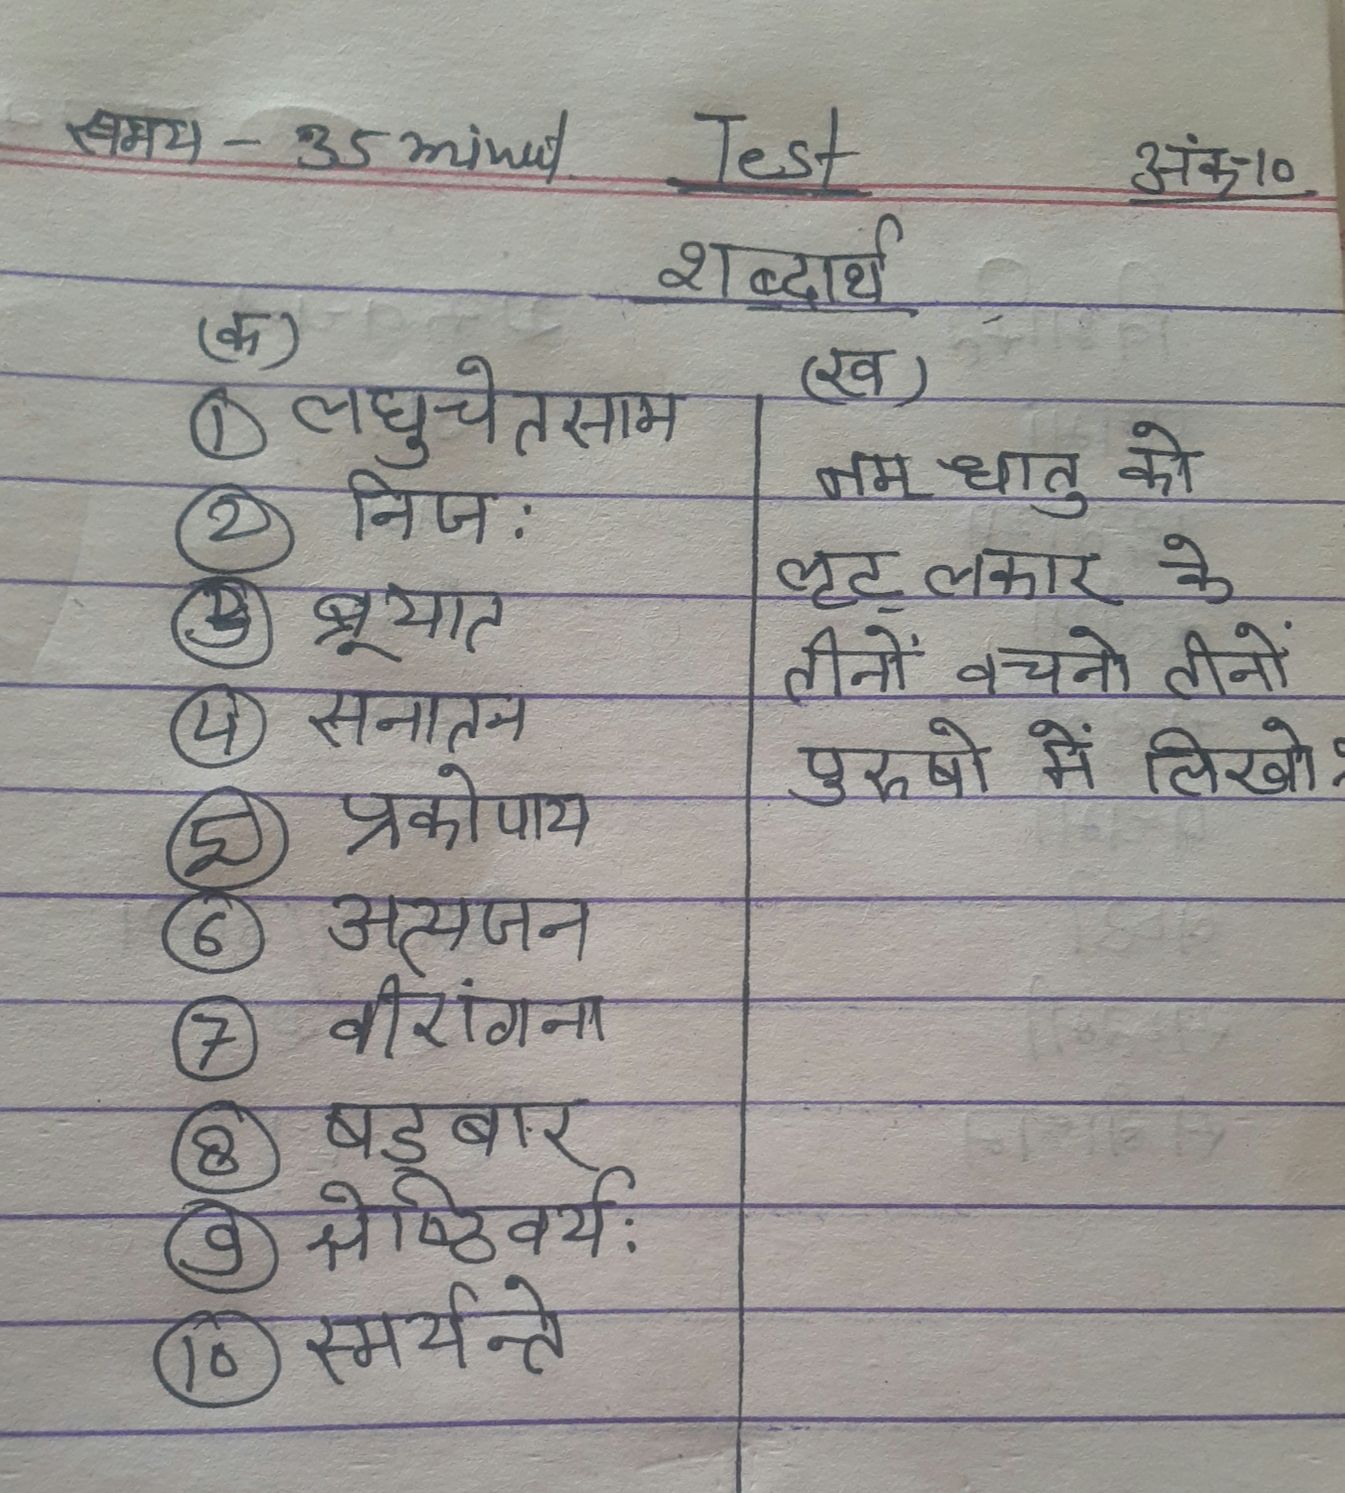 समय - 35 minut Test अंक-10
शब्दार्थ
(क)
① लघुचेतसाम
② निजः
③ ब्रूयात
④ सनातन
⑤ प्रकोपाय
⑥ अत्यजन
⑦ वीरांगना
⑧ षड्बार
⑨ श्रेष्ठिवर्यः
⑩ स्मर्यन्ते
(ख)
नम् धातु को
लृट् लकार के
तीनों वचनो तीनों
पुरुषो में लिखो?